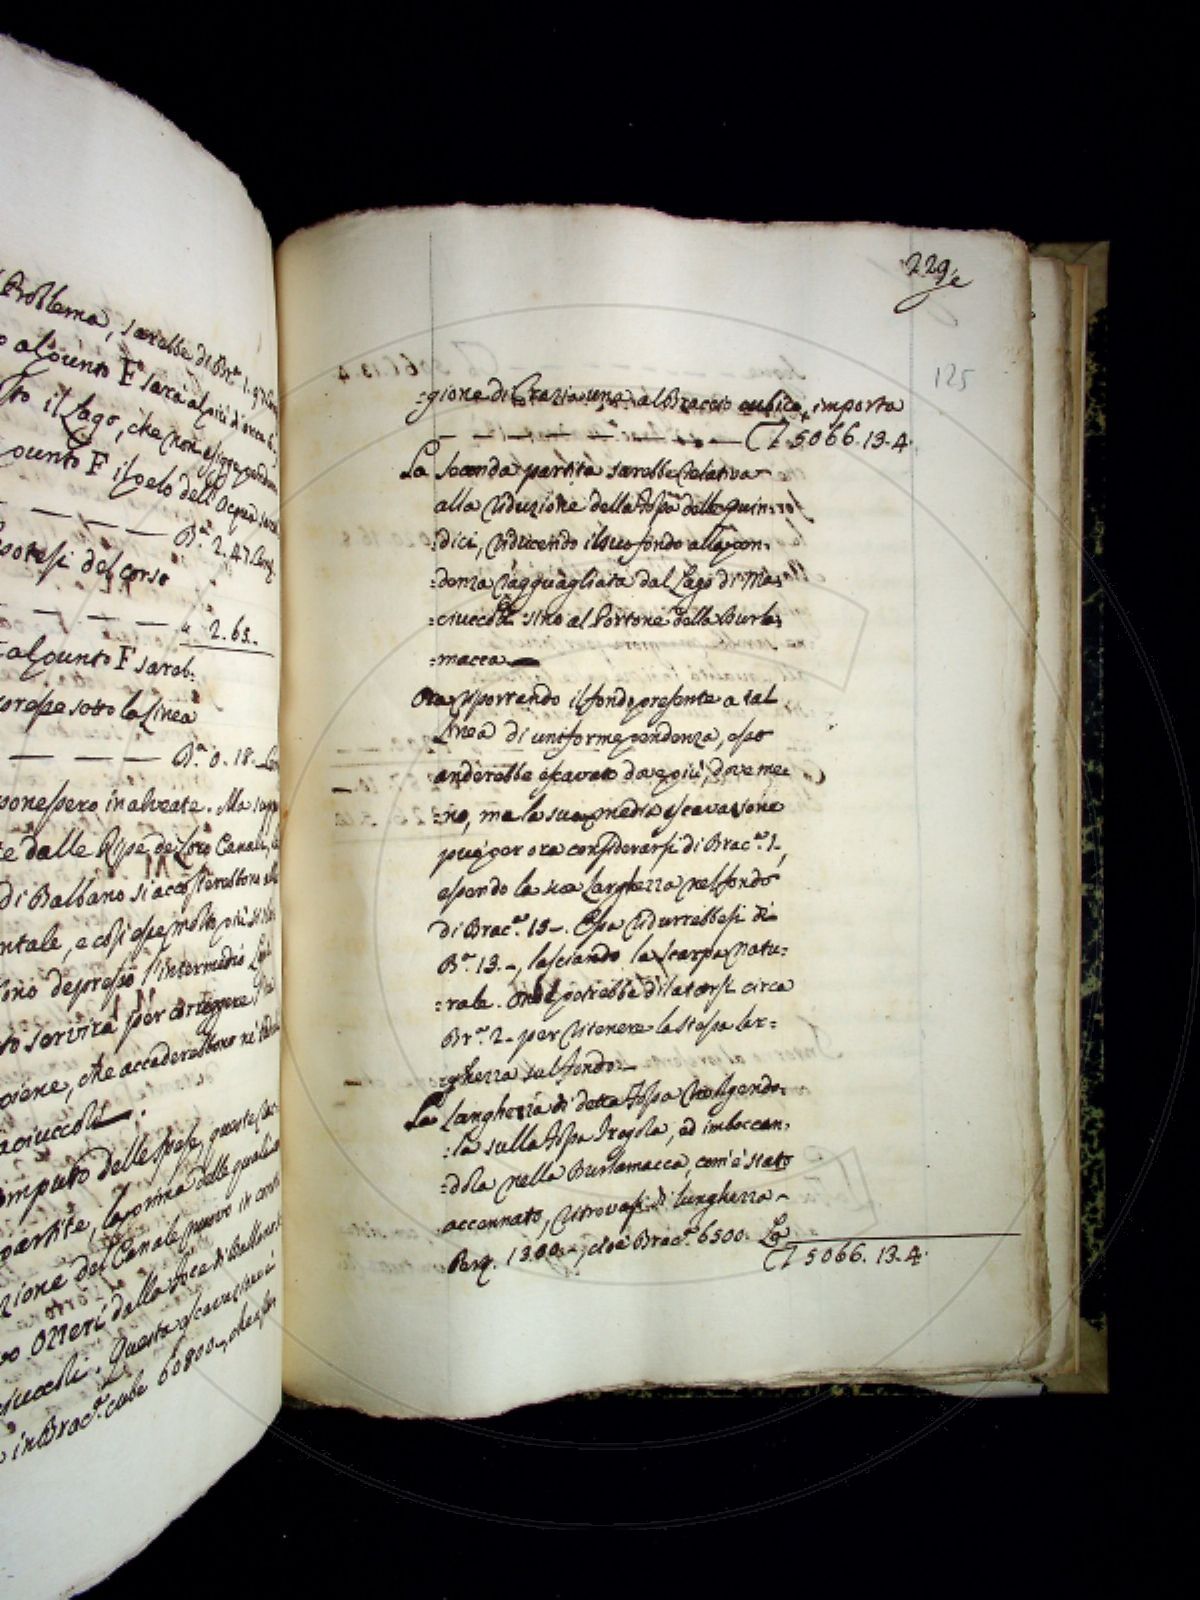 Problema, sarebbe di Br.a 1.97
al punto F sarà al più d'circa
il Lago, che non esigge penden
punto F il pelo dell'Acqua
— — — — B.a 2.47
potesi del corso
— — — — a 2.65.-
al punto F sareb:
sotto la Linea
— — — B.a 0.18.
in alveate. Ma
dalle Ripe de Loro Canali
di Balbano si accosterebbono
ntale, e così esse molto più
depresso l'intermedio
servirà per correggere
che accaderebbono
aciuccoli.
omputo delle spese, queste
partite, la prima delle quali
zione del Canale nuovo in
Ozzeri dalla foce di
. Questa escavazione
in Brac.a cube 60800-, che
229
125
:gione di Crazia una al Braccio cubico, importa
— — — — — — — — — 5066.13.4.
La seconda partita sarebbe relativa
alla riduzione della Fossa delle quin:
:dici, riducendo il suo fondo alla pen:
:denza ragguagliata dal Lago di Ma:
:ciuccoli sino al Portone della Burla:
:macca —
Ora riportando il fondo presente a tal
Linea di uniforme pendenza, esso
anderebbe escavato dove più, dove me:
:no, ma la sua media escavazione
può per ora considerarsi di Brac.a 1-,
essendo la sua Larghezza nel fondo
di Brac.a 15-. Essa ridurrebbesi di
B.a 13.-, lasciando la scarpa natu:
:rale. Onde potrebbe dilatarsi circa
Br.a 2- per ritenere la stessa lar:
:ghezza sul fondo.-
La Lunghezza di detta Fossa rivolgendo:
:la sulla Fossa Tragola, ed imboccan:
:dola nella Burlamacca, com'è stato
accennato, ritrovasi di lunghezza -
Perq. 1300.-, cioè Brac.a 6500. La
5066.13.4.